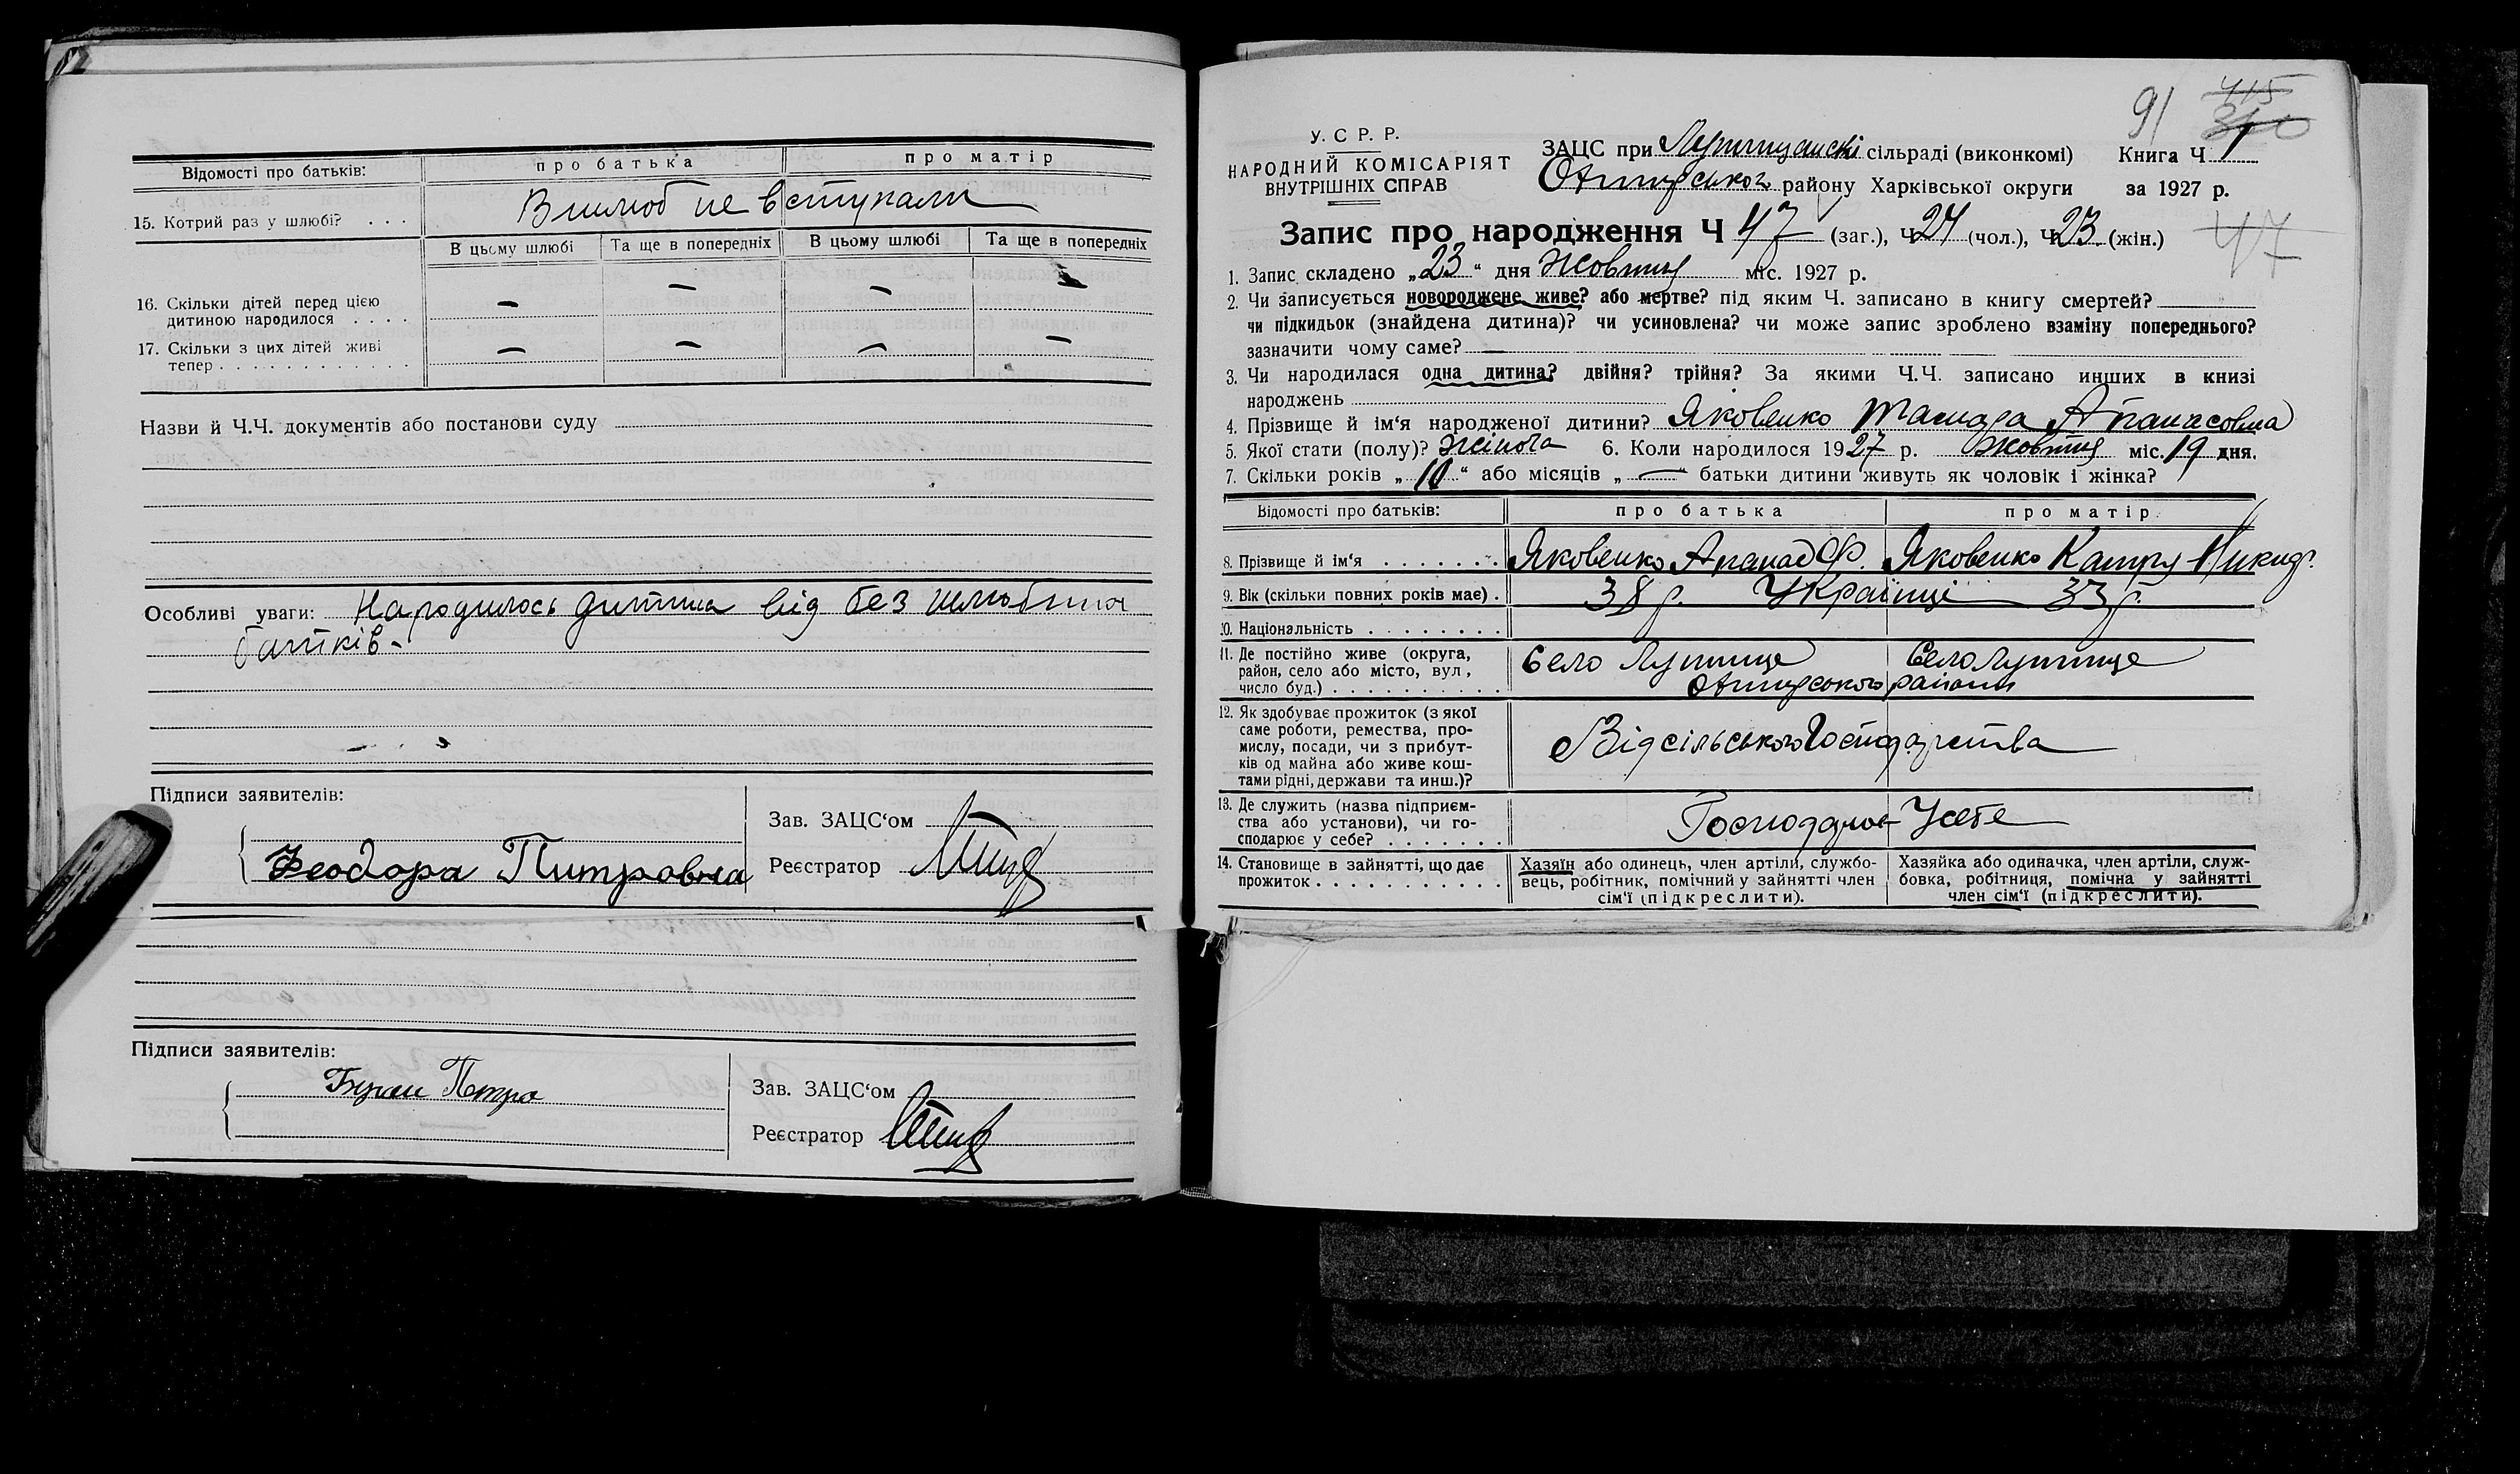 Відомості про батьків: про батька про матір
15. Котрий раз у шлюбі? . . . В шлюб не вступали
В цьому шлюбі Та ще в попередніх В цьому шлюбі Та ще в попередніх
16. Скільки дітей перед цією
дитиною народилося . . . . — — — —
17. Скільки з цих дітей живі
тепер . . . . . . . . . . . . — — — —
Назви й Ч.Ч. документів або постанови суду
Особливі уваги: Народилось дитина від без шлюбних
батків-
Підписи заявителів:
Зав. ЗАЦС‘ом
Феодора Питровна Реєстратор
Підписи заявителів:
Петро
Зав. ЗАЦС‘ом
Реєстратор
91 415
310
У. С Р. Р.
НАРОДНИЙ КОМІСАРІЯТ
ВНУТРІШНІХ СПРАВ
ЗАЦС при сільраді (виконкомі) Книга Ч 1
району Харківської округи за 1927 р.
Запис про народження Ч 47 (заг.), Ч 24 (чол.), Ч 23 (жін.) 47
1. Запис складено „23“ дня жовтня міс. 1927 р.
2. Чи записується новороджене живе? або мертве? під яким Ч. записано в книгу смертей?
чи підкидьок (знайдена дитина)? чи усиновлена? чи може запис зроблено взаміну попереднього?
зазначити чому саме? —
3. Чи народилася одна дитина? двійня? трійня? За якими Ч.Ч. записано инших в книзі
народжень
4. Прізвище й ім‘я народженої дитини? Яковенко Апанасовна
5. Якої стати (полу)? жіноча 6. Коли народилося 1927 р. жовтня міс. 19 дня.
7. Скільки років „10“ або місяців „—“ батьки дитини живуть як чоловік і жінка?
Відомості про батьків: про батька про матір
8. Прізвище й ім‘я . . . . . . . Яковенко Апанас Ф. Яковенко Катря Никид.
9. Вік (скільки повних років має) . 38 р. Українці 33 р.
10. Національність . . . . . . . .
11. Де постійно живе (округа,
район, село або місто, вул,
число буд.) . . . . . . . . . . .
Село Лутище Село Лутище
району
12. Як здобуває прожиток (з якої
саме роботи, ремества, про-
мислу, посади, чи з прибут-
ків од майна або живе кош-
тами рідні, держави та инш.)?
Від сільського Господарства
13. Де служить (назва підприєм-
ства або установи), чи го-
сподарює у себе? . . . . . . .
Господарює Усебе
14. Становище в зайнятті, що дає
прожиток . . . . . . . . . . .
Хазяїн або одинець, член артіли, службо-
вець, робітник, помічний у зайнятті член
сім‘ї (підкреслити).
Хазяйка або одиначка, член артіли, служ-
бовка, робітниця, помічна у зайнятті
член сім‘ї (підкреслити).